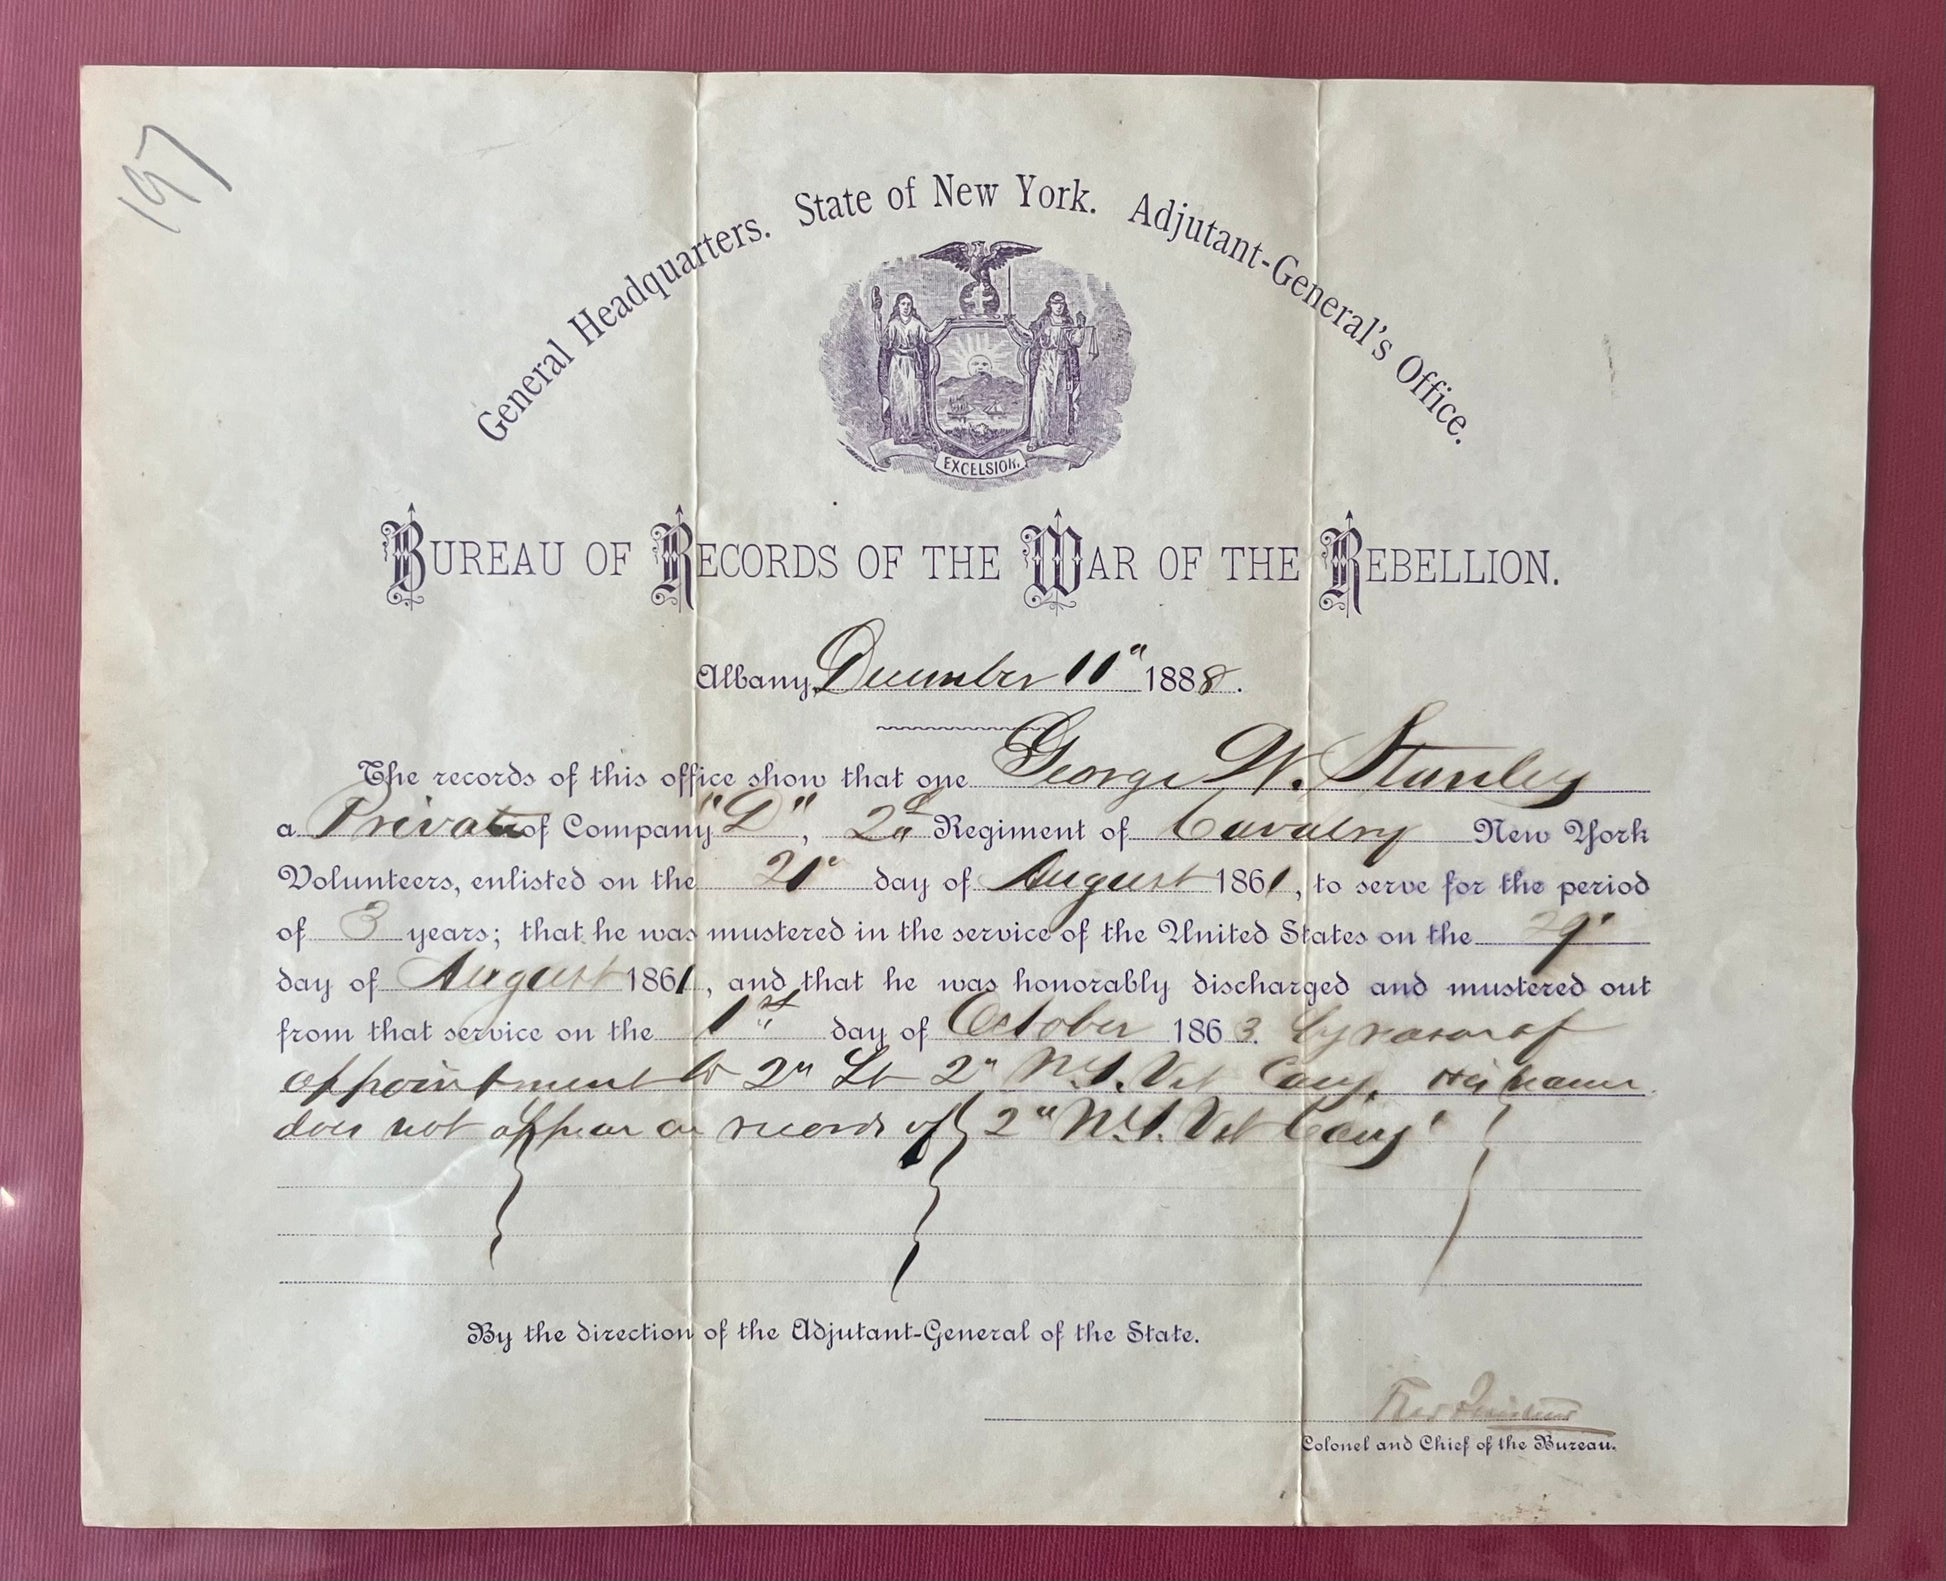 197
General Headquarters. State of New York. Adjutant-General's Office.
EXCELSIOR.
BUREAU OF RECORDS OF THE WAR OF THE REBELLION.
Albany, December 11" 1888.
The records of this office show that one George W. Stanley
a Private of Company "D", 2d Regiment of Cavalry New York
Volunteers, enlisted on the 21" day of August 1861, to serve for the period
of 3 years; that he was mustered in the service of the United States on the 29"
day of August 1861, and that he was honorably discharged and mustered out
from that service on the 1st day of October 1863. by reason of
appointment to 2" Lt 2" N.Y. Vet Cavy. His name
does not appear on records of 2" N.Y. Vet Cavy.
By the direction of the Adjutant-General of the State.
Colonel and Chief of the Bureau.